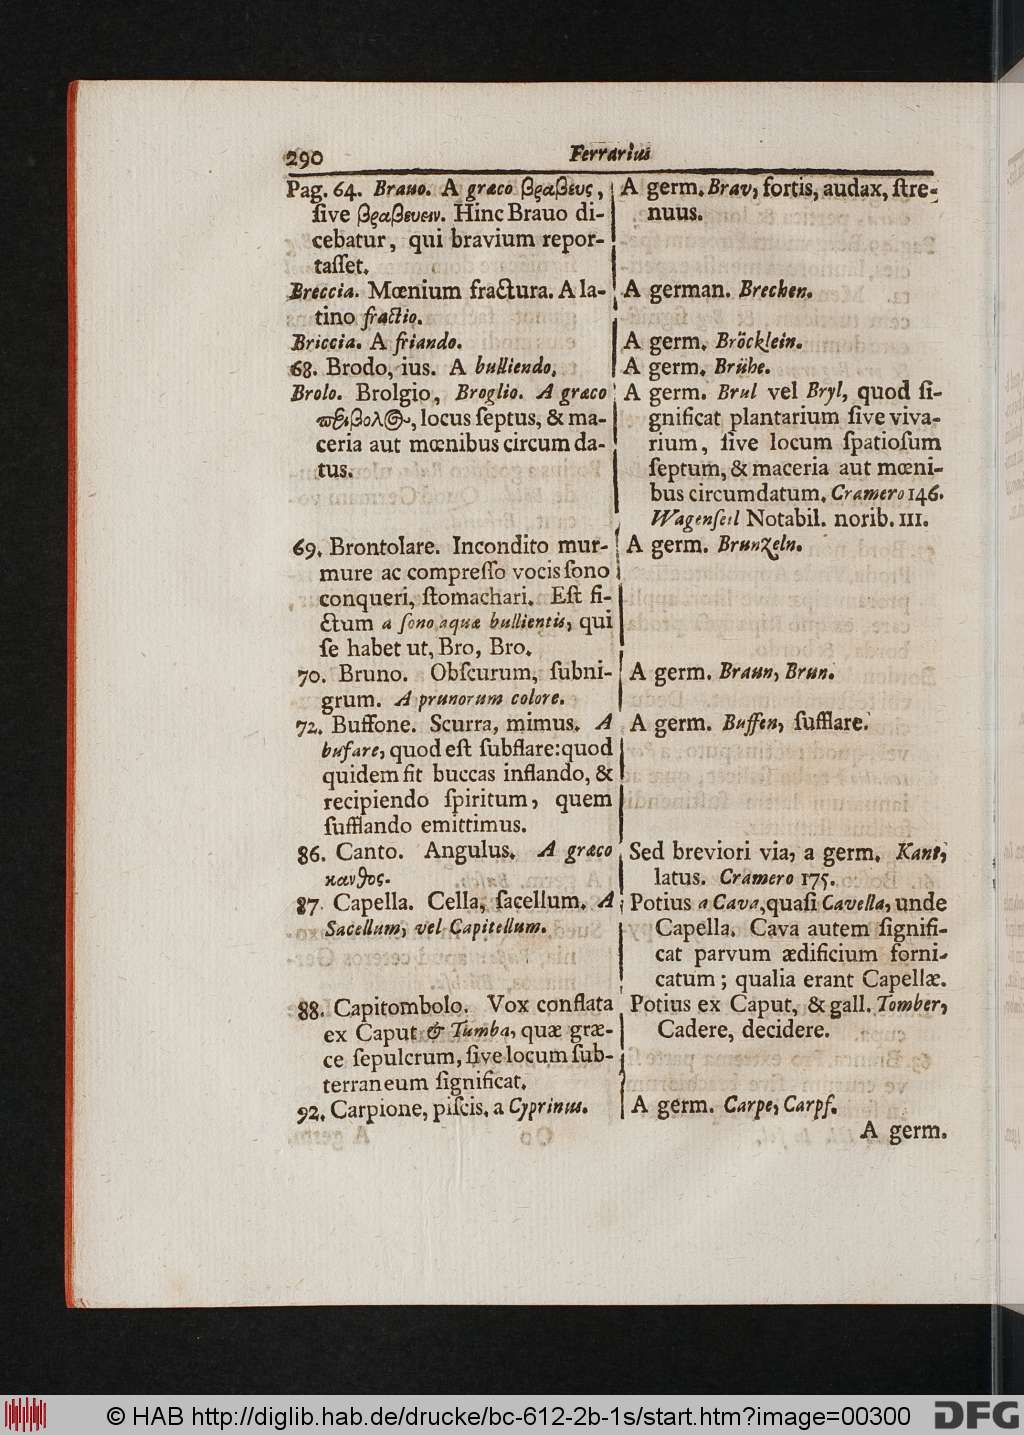 290
Ferrarius
Pag. 64. Brauo. A græco βραβευς,
ſive βραβευειν. Hinc Brauo di-
cebatur, qui bravium repor-
taſſet.
Breccia. Mœnium fractura. A la-
tino fractio.
Briccia. A friando.
68. Brodo, ius. A bulliendo.
Brolo. Brolgio, Broglio. A græco
περιβολος, locus ſeptus, & ma-
ceria aut mœnibus circumda-
tus.
69. Brontolare. Incondito mur-
mure ac compreſſo vocis ſono
conqueri, ſtomachari. Eſt fi-
ctum a ſono aquæ bullientis, qui
ſe habet ut, Bro, Bro.
70. Bruno. Obſcurum, ſubni-
grum. A prunorum colore.
72. Buffone. Scurra, mimus. A
bufare, quod eſt ſubflare: quod
quidem fit buccas inflando, &
recipiendo ſpiritum, quem
ſufflando emittimus.
86. Canto. Angulus. A græco
κανθος.
87. Capella. Cella, ſacellum. A
Sacellum, vel Capitellum.
88. Capitombolo. Vox conflata
ex Caput & Tumba, quæ græ-
ce ſepulcrum, ſive locum ſub-
terraneum ſignificat.
92. Carpione, piſcis. a Cyprinus.
A germ. Brav, fortis, audax, ſtre-
nuus.
A german. Brechen.
A germ. Bröcklein.
A germ. Brühe.
A germ. Brul vel Bryl, quod ſi-
gnificat plantarium ſive viva-
rium, ſive locum ſpatioſum
ſeptum, & maceria aut mœni-
bus circumdatum. Cramero 146.
Wagenſeil Notabil. norib. 111.
A germ. Brunzeln.
A germ. Braun, Brun.
A germ. Buffen, ſufflare.
Sed breviori via, a germ. Kant,
latus. Cramero 175.
Potius a Cava, quaſi Cavella, unde
Capella. Cava autem ſignifi-
cat parvum ædificium forni-
catum; qualia erant Capellæ.
Potius ex Caput, & gall. Tomber,
Cadere, decidere.
A germ. Carpe, Carpf.
A germ.
© HAB http://diglib.hab.de/drucke/bc-612-2b-1s/start.htm?image=00300
DFG